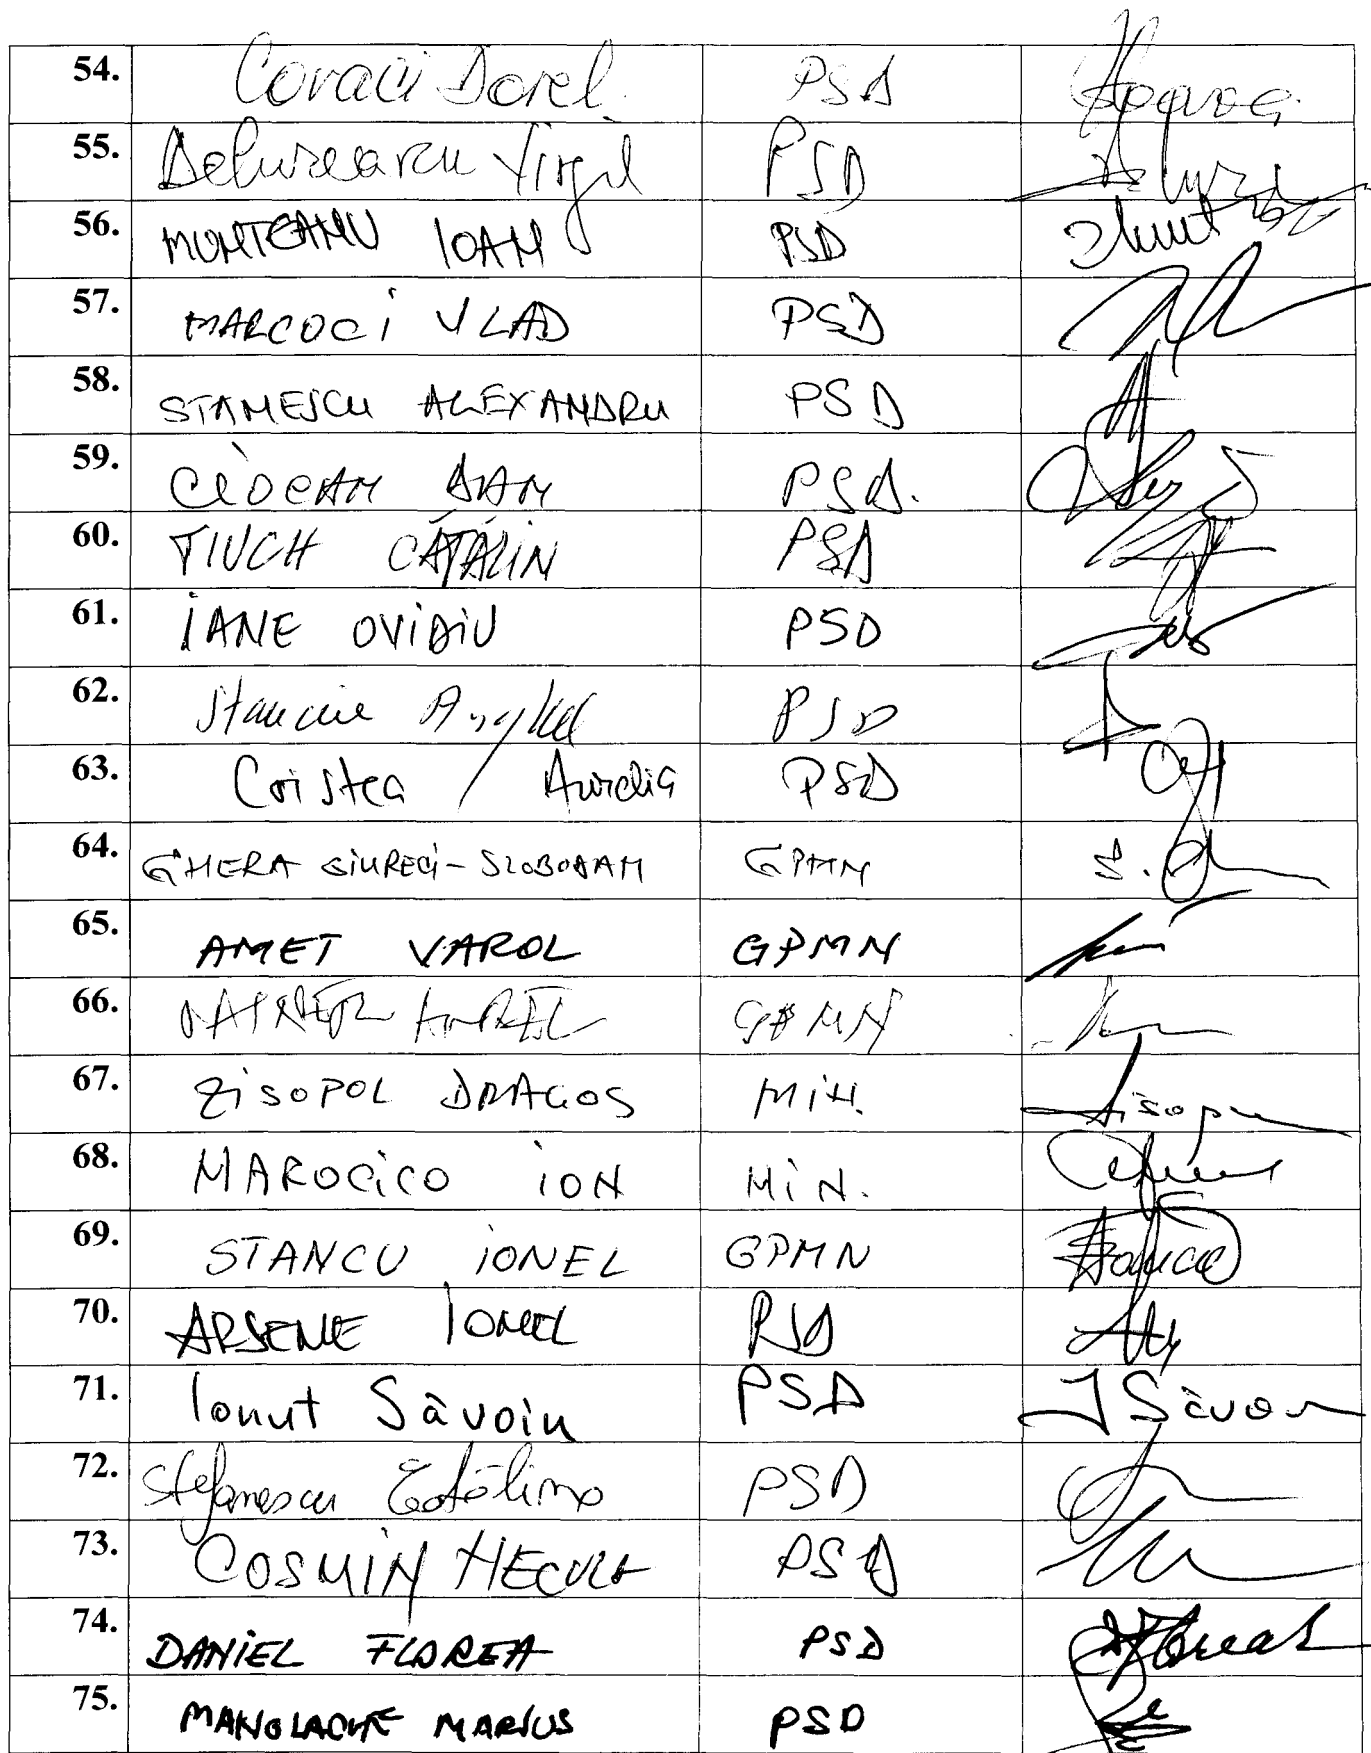 54. Covaci Dorel. PSD
55. Delureanu Virgil PSD
56. MUNTEANU IOAN PSD
57. MARCOCI VLAD PSD
58. STANESCU ALEXANDRU PSD
59. CIOCAN DAN PSD.
60. TIUCH CĂTĂLIN PSD
61. IANE OVIDIU PSD
62. Stanciu Anghel PSD
63. Cristea Aurelia PSD
64. GHERA GIURECI-SLOBODAN GPMN
65. AMET VAROL GPMN
66. GPMN
67. ZISOPOL DRAGOS MIN.
68. MAROCICO ION MIN.
69. STANCU IONEL GPMN
70. ARSENE IONEL PSD
71. Ionut Săvoiu PSD
72. Stefanescu PSD
73. COSMIN NECULA PSD
74. DANIEL FLOREA PSD
75. MANOLACHE MARIUS PSD